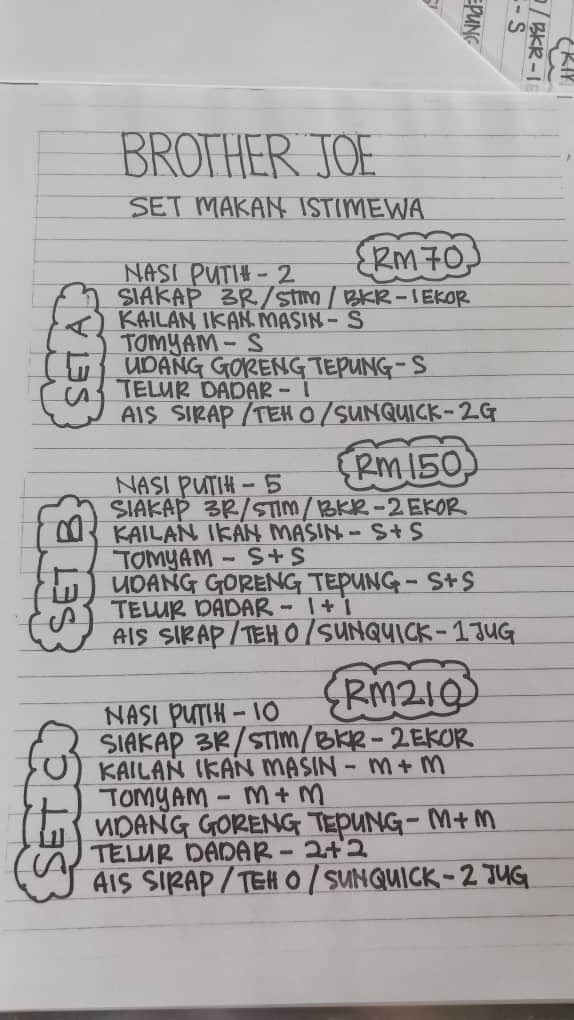 BROTHER JOE
SET MAKAN ISTIMEWA
RM70
SET A
NASI PUTIH - 2
SIAKAP 3R/STIM/BKR - 1 EKOR
KAILAN IKAN MASIN - S
TOMYAM - S
UDANG GORENG TEPUNG - S
TELUR DADAR - 1
AIS SIRAP/TEH O/SUNQUICK - 2G
RM150
SET B
NASI PUTIH - 5
SIAKAP 3R/STIM/BKR - 2 EKOR
KAILAN IKAN MASIN - S+S
TOMYAM - S+S
UDANG GORENG TEPUNG - S+S
TELUR DADAR - 1+1
AIS SIRAP/TEH O/SUNQUICK - 1 JUG
RM210
SET C
NASI PUTIH - 10
SIAKAP 3R/STIM/BKR - 2 EKOR
KAILAN IKAN MASIN - M+M
TOMYAM - M+M
UDANG GORENG TEPUNG - M+M
TELUR DADAR - 2+2
AIS SIRAP/TEH O/SUNQUICK - 2 JUG